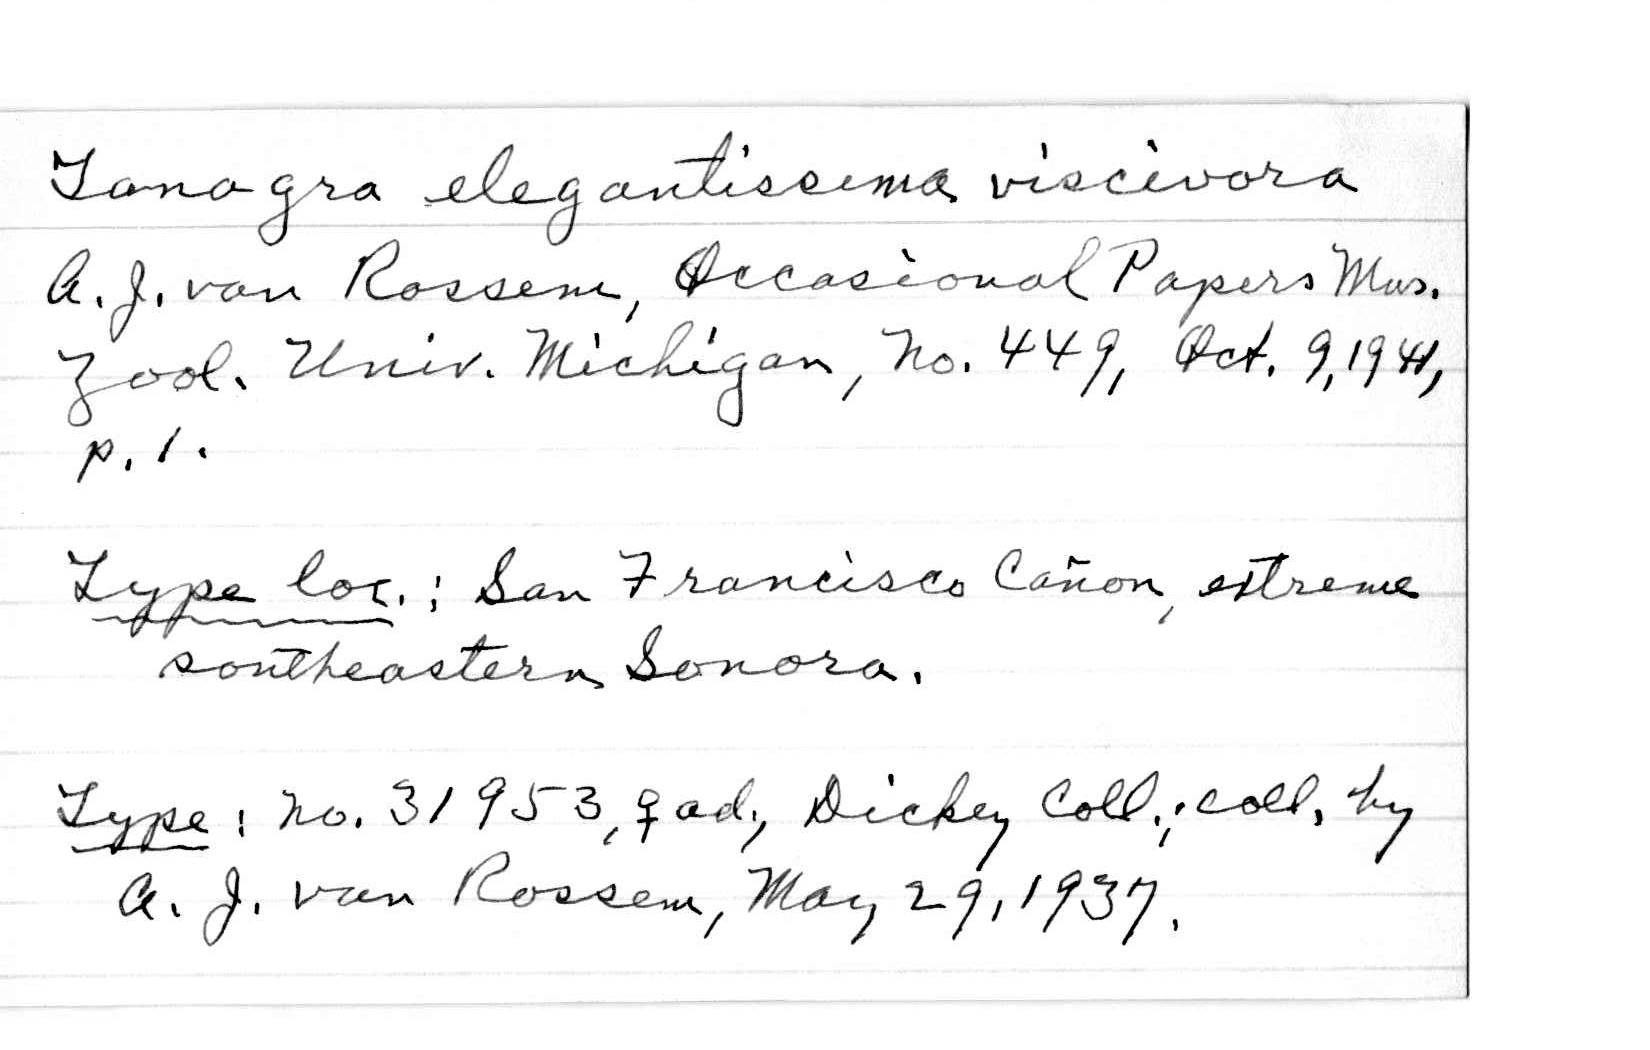 Tanagra elegantissima viscivora
A. J. van Rossem, Occasional Papers Mus.
Zool. Univ. Michigan, No. 449, Oct. 9, 1941,
p. 1.
Type loc.: San Francisco Cañon, extreme
southeastern Sonora.
Type: No. 31953, ♀ ad., Dickey Coll.; coll. by
A. J. van Rossem, May 29, 1937.